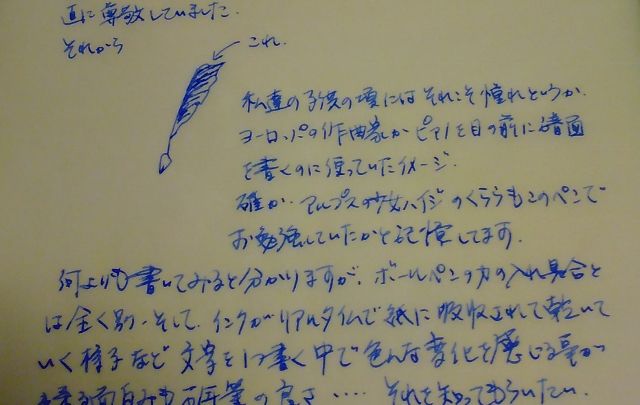 直に尊敬していました.
それから
これ.
私達の子供の頃にはそれこそ憧れというか.
ヨーロッパの作曲家がピアノを目の前に譜面
を書くのに使っていたイメージ.
確か.アルプスの少女ハイジのくららもこのペンで
お勉強していたかと記憶してます.
何よりも書いてみると分かりますが、ボールペンの力の入れ具合と
は全く別.そして、インクがリアルタイムで紙に吸収されて乾いて
いく様子など文字を1つ書く中で色んな変化を感じる事が
る面白みも万年筆の良さ‥‥それを知ってもらいたい.